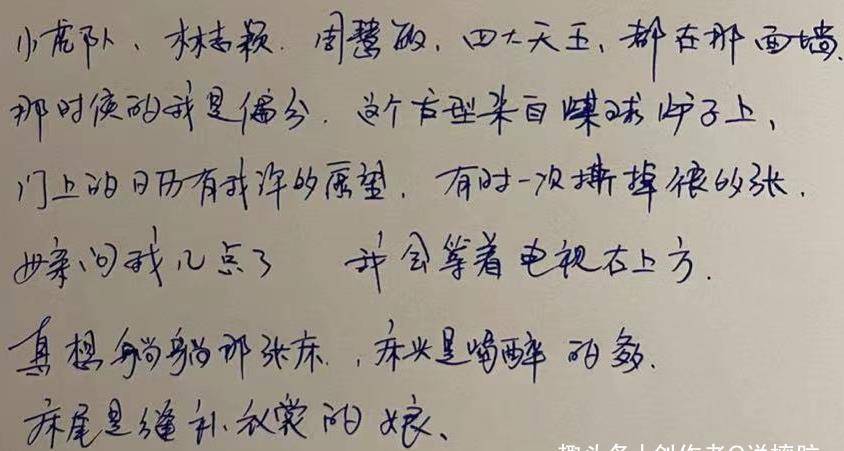 小虎队、林志颖.周慧敏.四大天王,都在那面墙.
那时侯的我是偏分.这个发型来自煤球炉子上,
门上的日历有我许的愿望.有时一次撕掉很多张.
母亲问我几点了 我会等着电视右上方.
真想躺躺那张床.,床头是喝醉的爹.
床尾是缝补衣裳的娘、